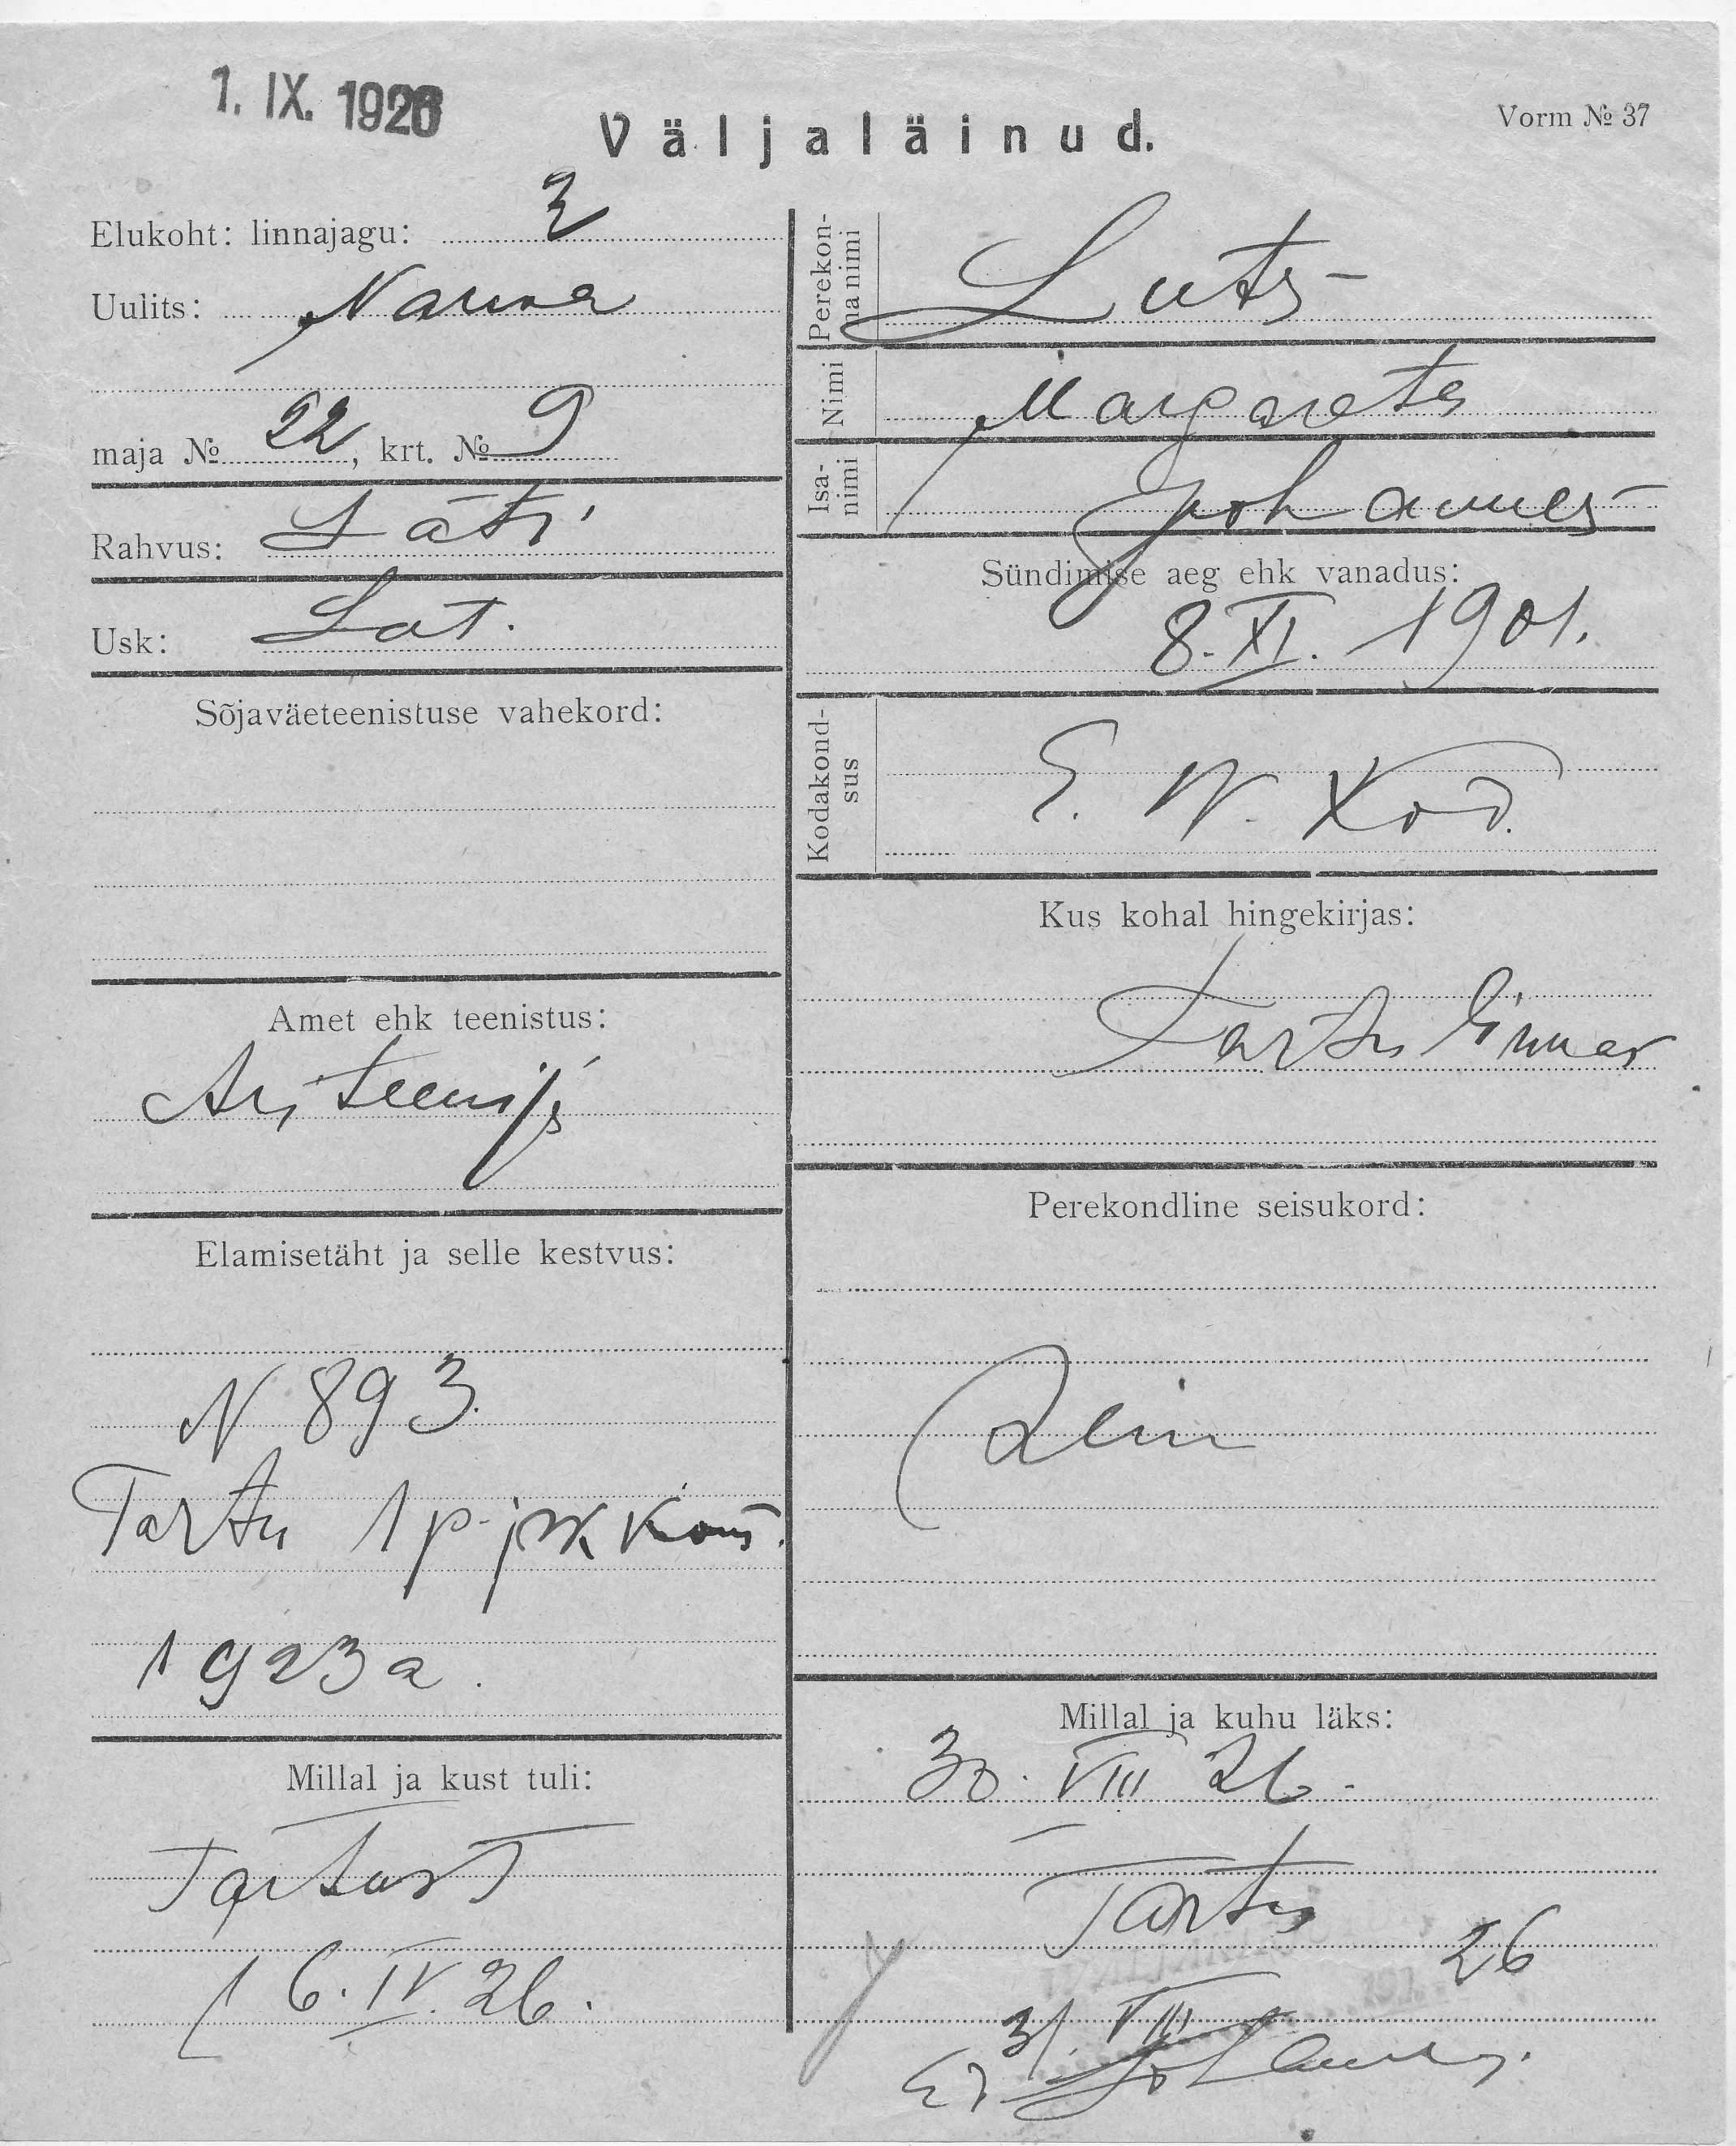 1. IX. 1926
Väljaläinud.
Vorm № 37
Elukoht: linnajagu: 3
Uulits: Narva
maja № 22, krt. № 9
Rahvus: Läti
Usk: Lut.
Sõjaväeteenistuse vahekord:
Amet ehk teenistus:
Äriteenija
Elamisetäht ja selle kestvus:
N 893.
Tartu 1 p-jsk kom.
1923 a.
Millal ja kust tuli:
Tartust
16. IV. 26.
Perekonnanimi
Luts
Nimi
Margareta
Isanimi
Johannes
Sündimise aeg ehk vanadus:
8. XI. 1901.
Kodakondsus
E. W. Kod.
Kus kohal hingekirjas:
Tartu linnas
Perekondline seisukord:
Millal ja kuhu läks:
30. VIII 26.
Tartu
31. VIII 26